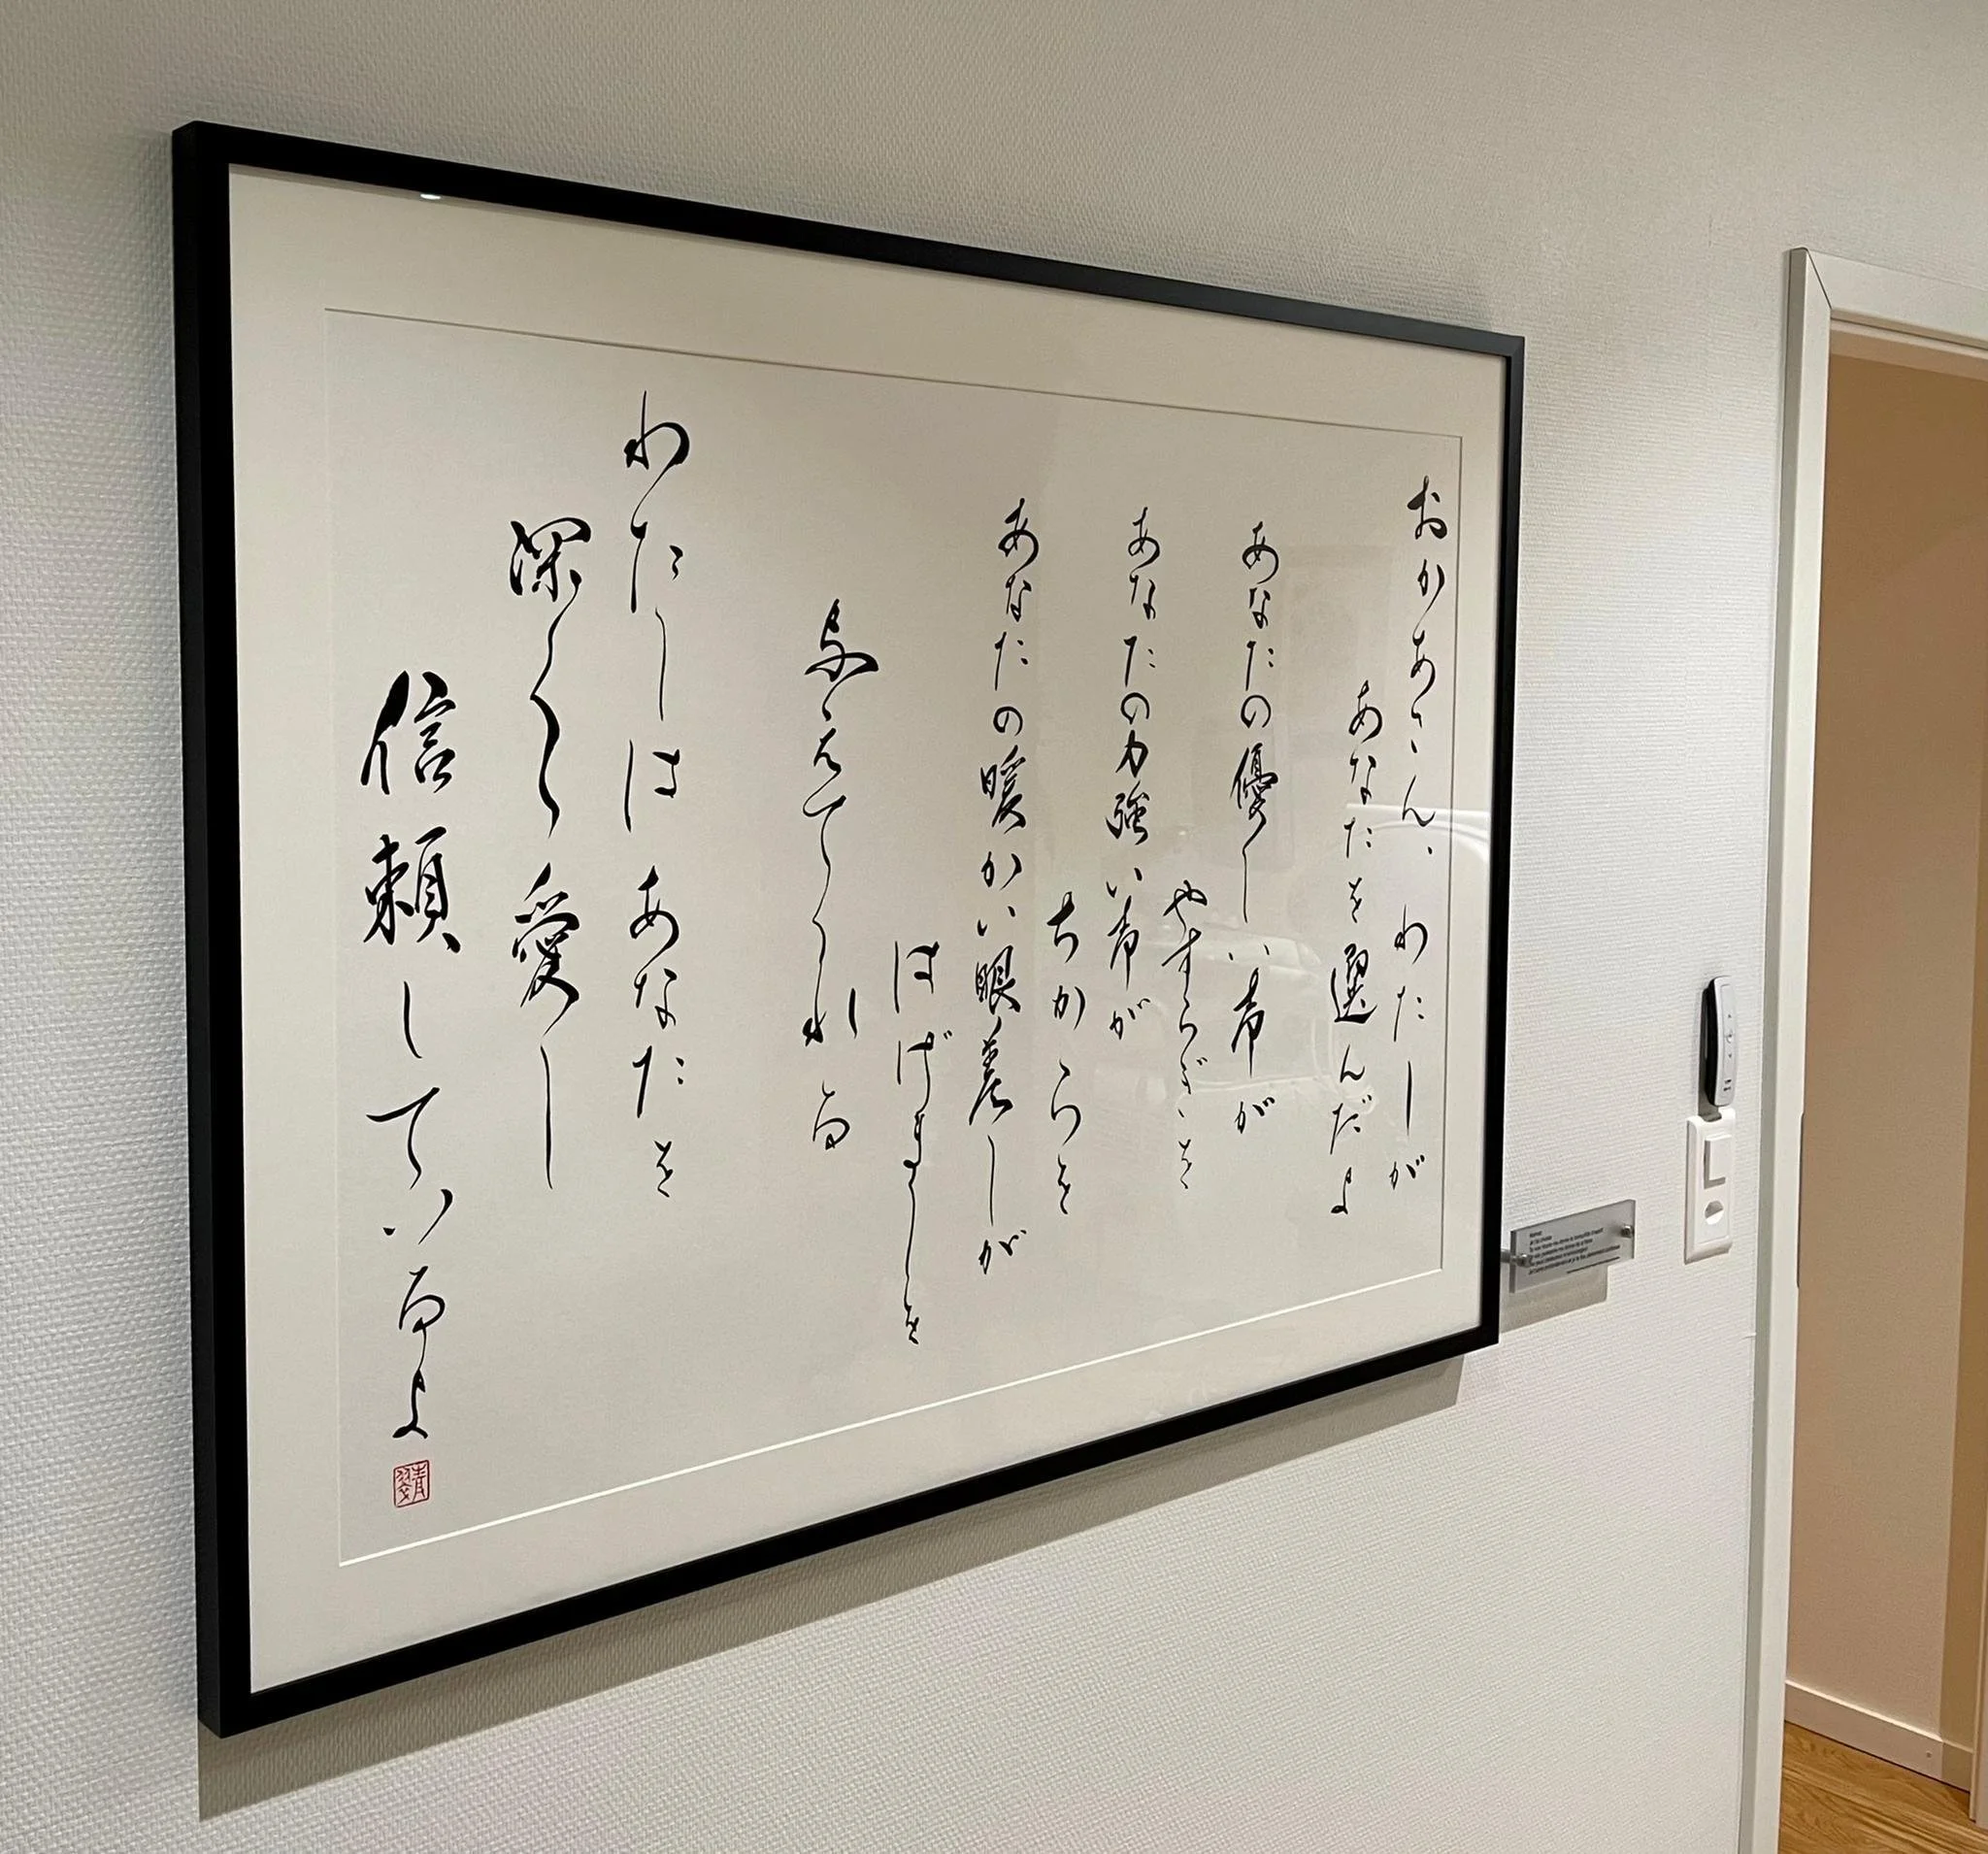 おかあさん、わたしが
あなたを選んだよ
あなたの優しい声が
やすらぎを
あなたの力強い声が
ちからを
あなたの暖かい眼差しが
はげましを
与えてくれる
わたしはあなたを
深く愛し
信頼しているよ